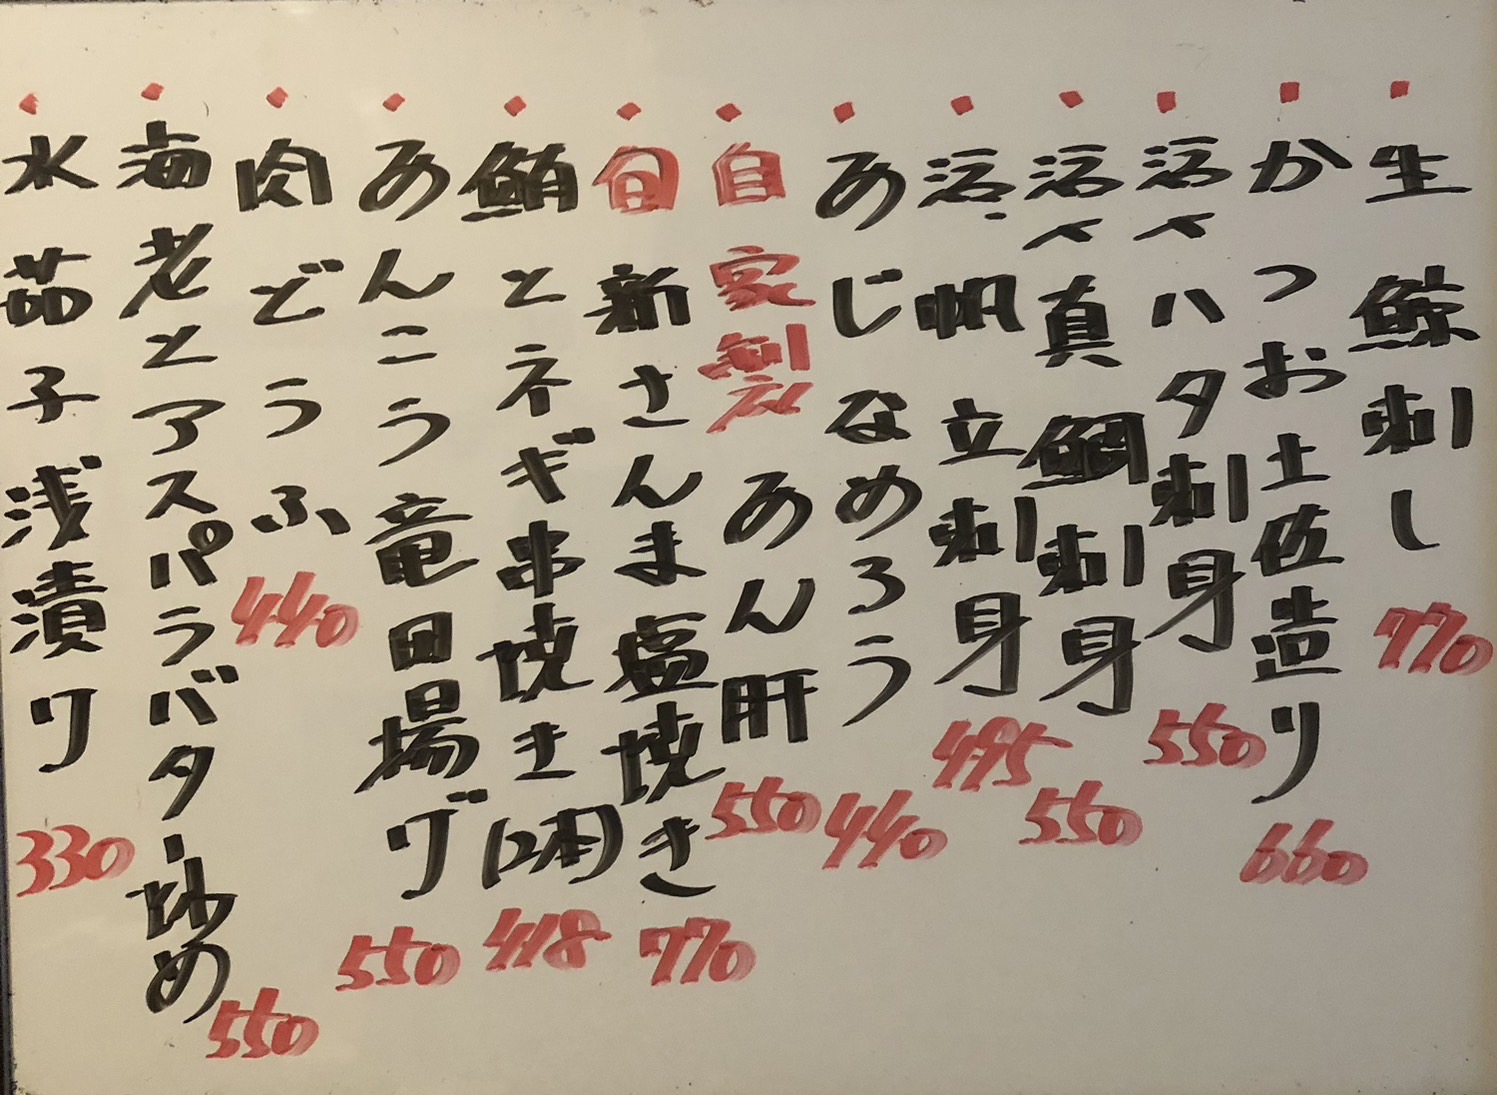 生鯨刺し 770
かつお土佐造り 660
活〆ハタ刺身 550
活〆真鯛刺身 550
活帆立刺身 495
あじなめろう 440
自家製あん肝 550
旬新さんま塩焼き 770
鮪とネギ串焼き(2本) 418
あんこう竜田揚げ 550
肉どうふ 440
海老とアスパラバター炒め 550
水茄子浅漬り 330